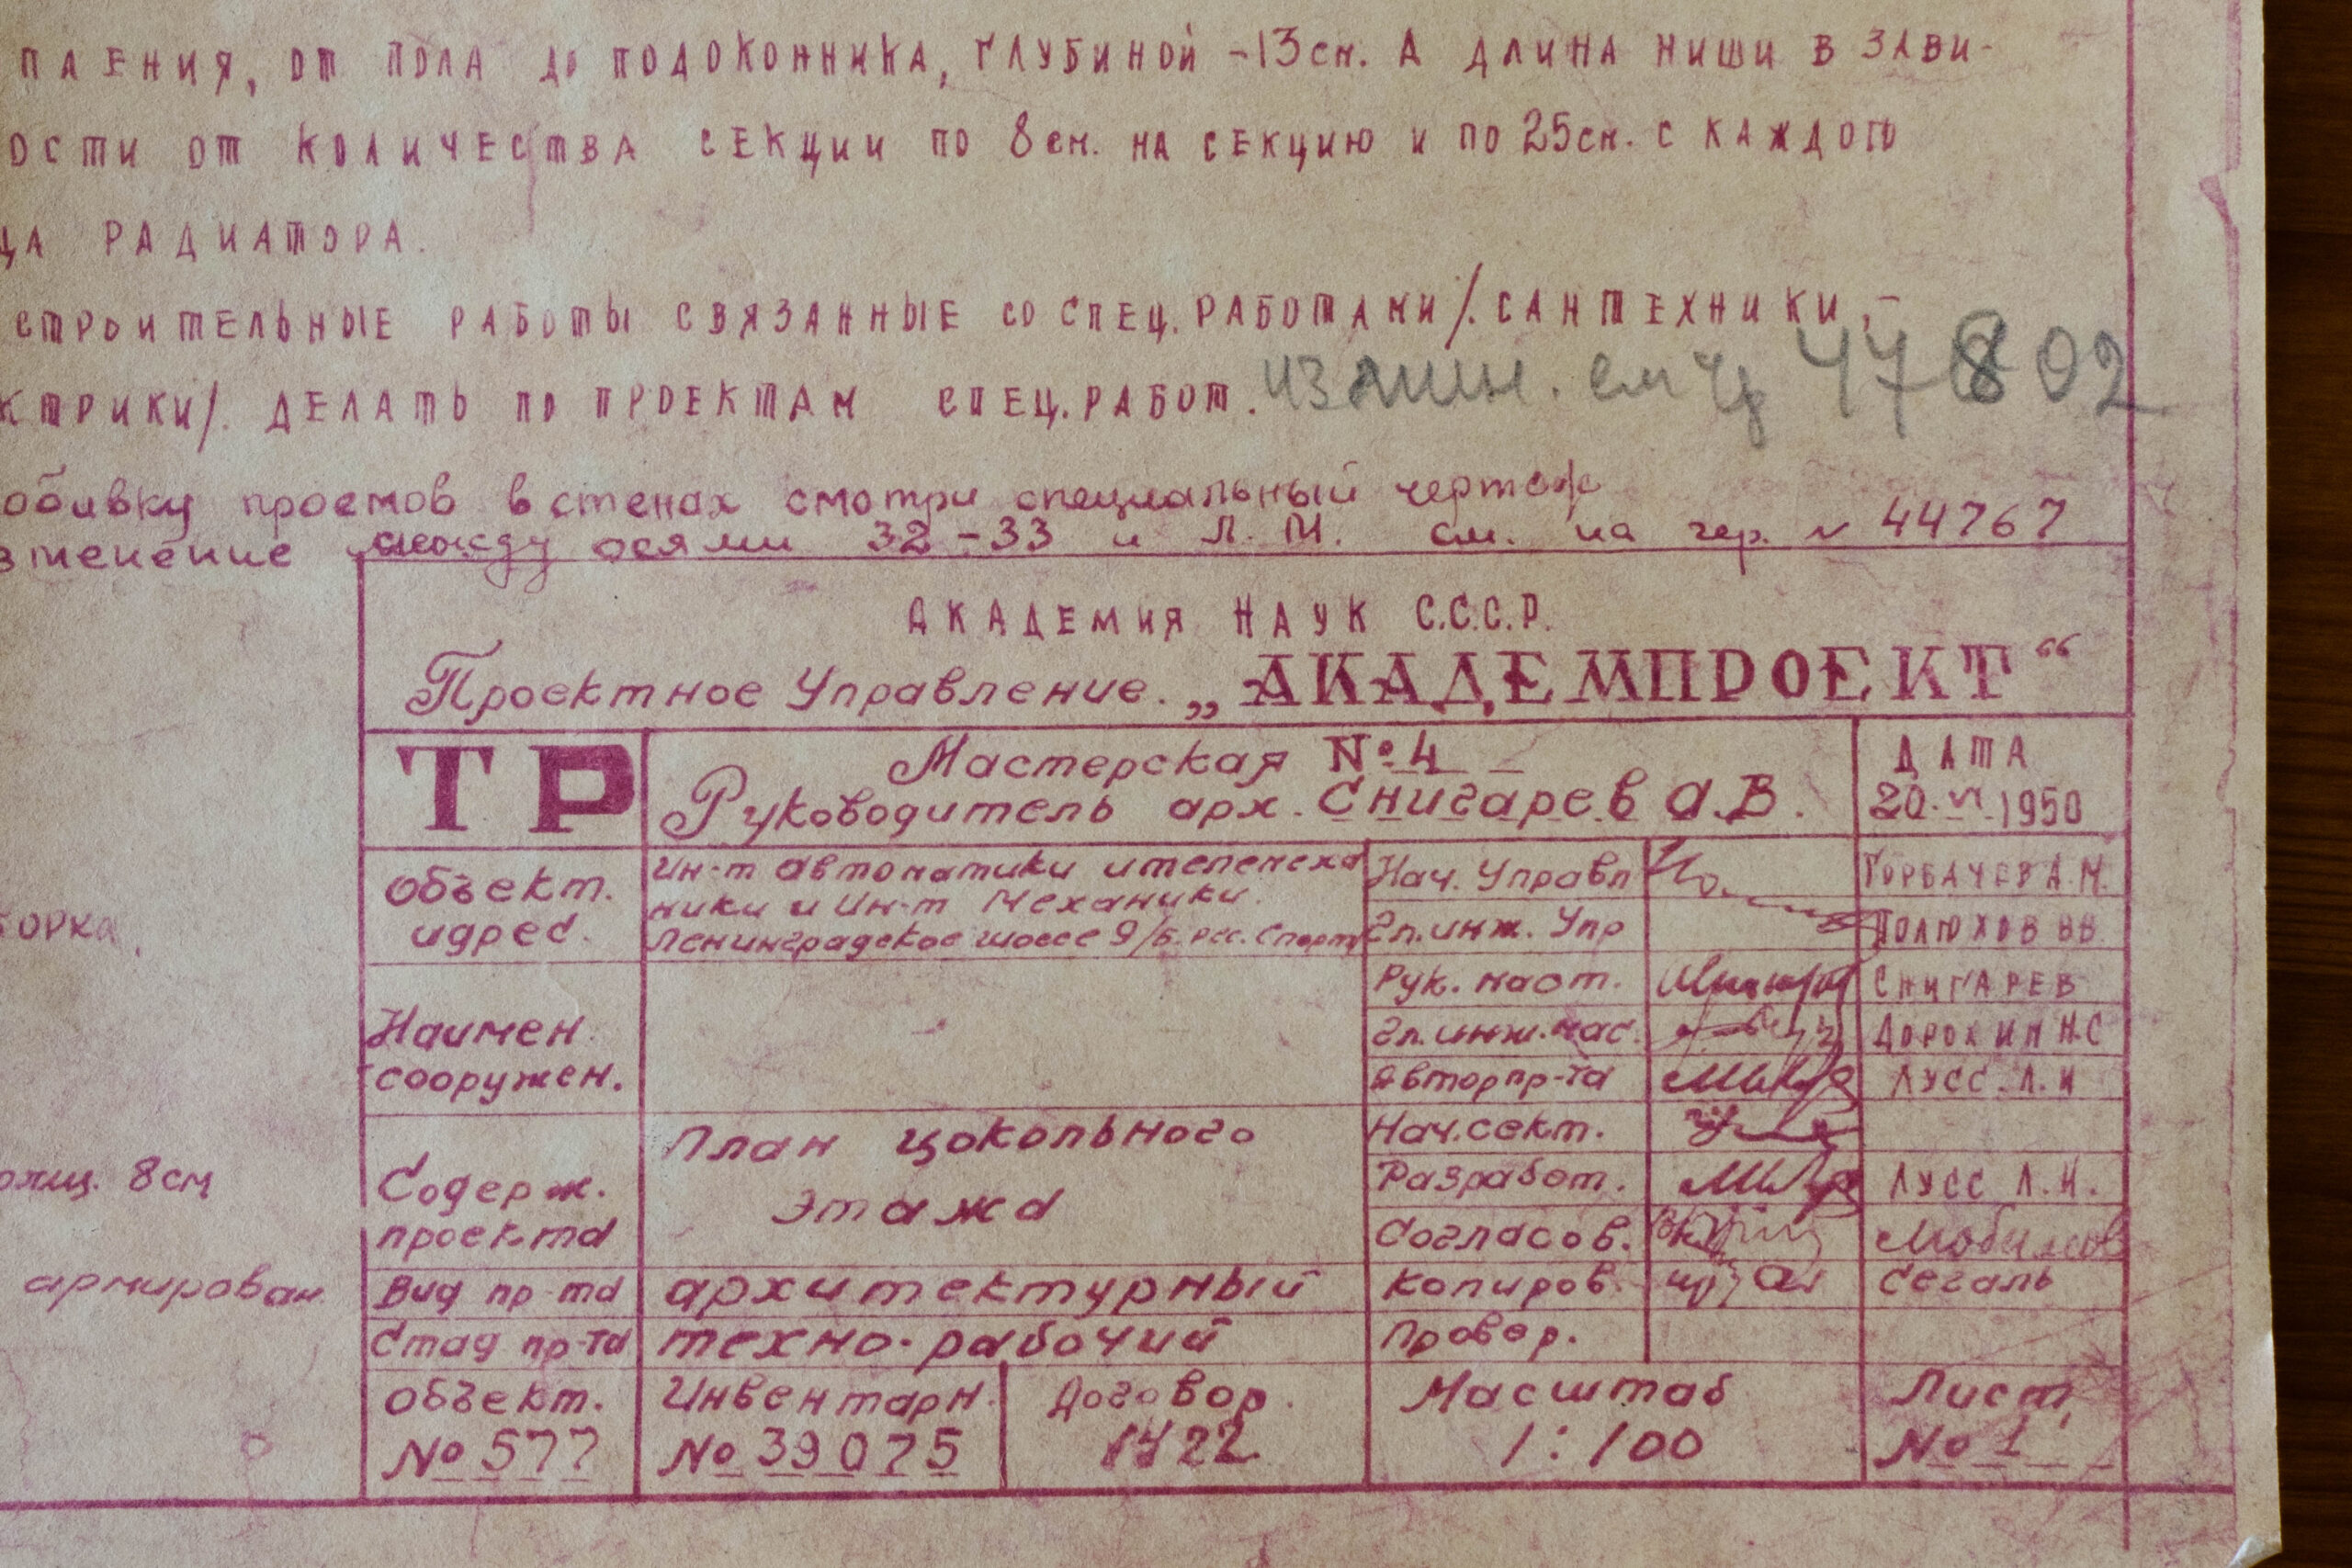 ПЛЕНИЯ, ОТ ПОЛА ДО ПОДОКОННИКА, ГЛУБИНОЙ -13см. А ДЛИНА НИШИ В ЗАВИ-
ОСТИ ОТ КОЛИЧЕСТВА СЕКЦИИ ПО 8см. НА СЕКЦИЮ И ПО 25см. С КАЖДОГО
ЦА РАДИАТОРА.
СТРОИТЕЛЬНЫЕ РАБОТЫ СВЯЗАННЫЕ СО СПЕЦ. РАБОТАМИ/. САНТЕХНИКИ,-
КТРИКИ/. ДЕЛАТЬ ПО ПРОЕКТАМ СПЕЦ. РАБОТ.
см 47802
обивку проемов в стенах смотри специальный чертеж
зменение между осями 32-33 и Л. М. см. на чер. N 44767
АКАДЕМИЯ НАУК С.С.С.Р.
Проектное Управление. „АКАДЕМПРОЕКТ“
ТР
Мастерская №4
Руководитель арх. Снигарев А.В.
ДАТА
20.VI.1950
Объект.
идрес.
Ин-т автоматики и телемеха
ники и Ин-т Механики.
Ленинградское шоссе 9/б. рес. Спорт
Нач. Управл ГОРБАЧЕВ А.М.
Гл. инж. Упр ПОЛЮХОВ ВВ.
Рук. маст. СНИГАРЕВ
Гл. инж. мас. ДОРОХИН Н.С
Автор пр-та ЛУСС. Л.И
Нач. сект.
Разработ. ЛУСС Л.И.
Согласов.
Копиров. Сегаль
Провер.
Наимен.
сооружен.
Содерж.
проекта
План цокольного
этажа
Вид пр-та архитектурный
Стад пр-та техно-рабочий
Объект.
№ 577
Инвентарн.
№ 39075
Договор.
1422
Масштаб
1:100
Лист
№ 1
БОРКА.
олщ. 8см
армирован.